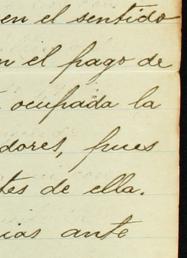 en el sentido
n el pago de
ocupada la
dores, pues
tes de ella.
ias ante